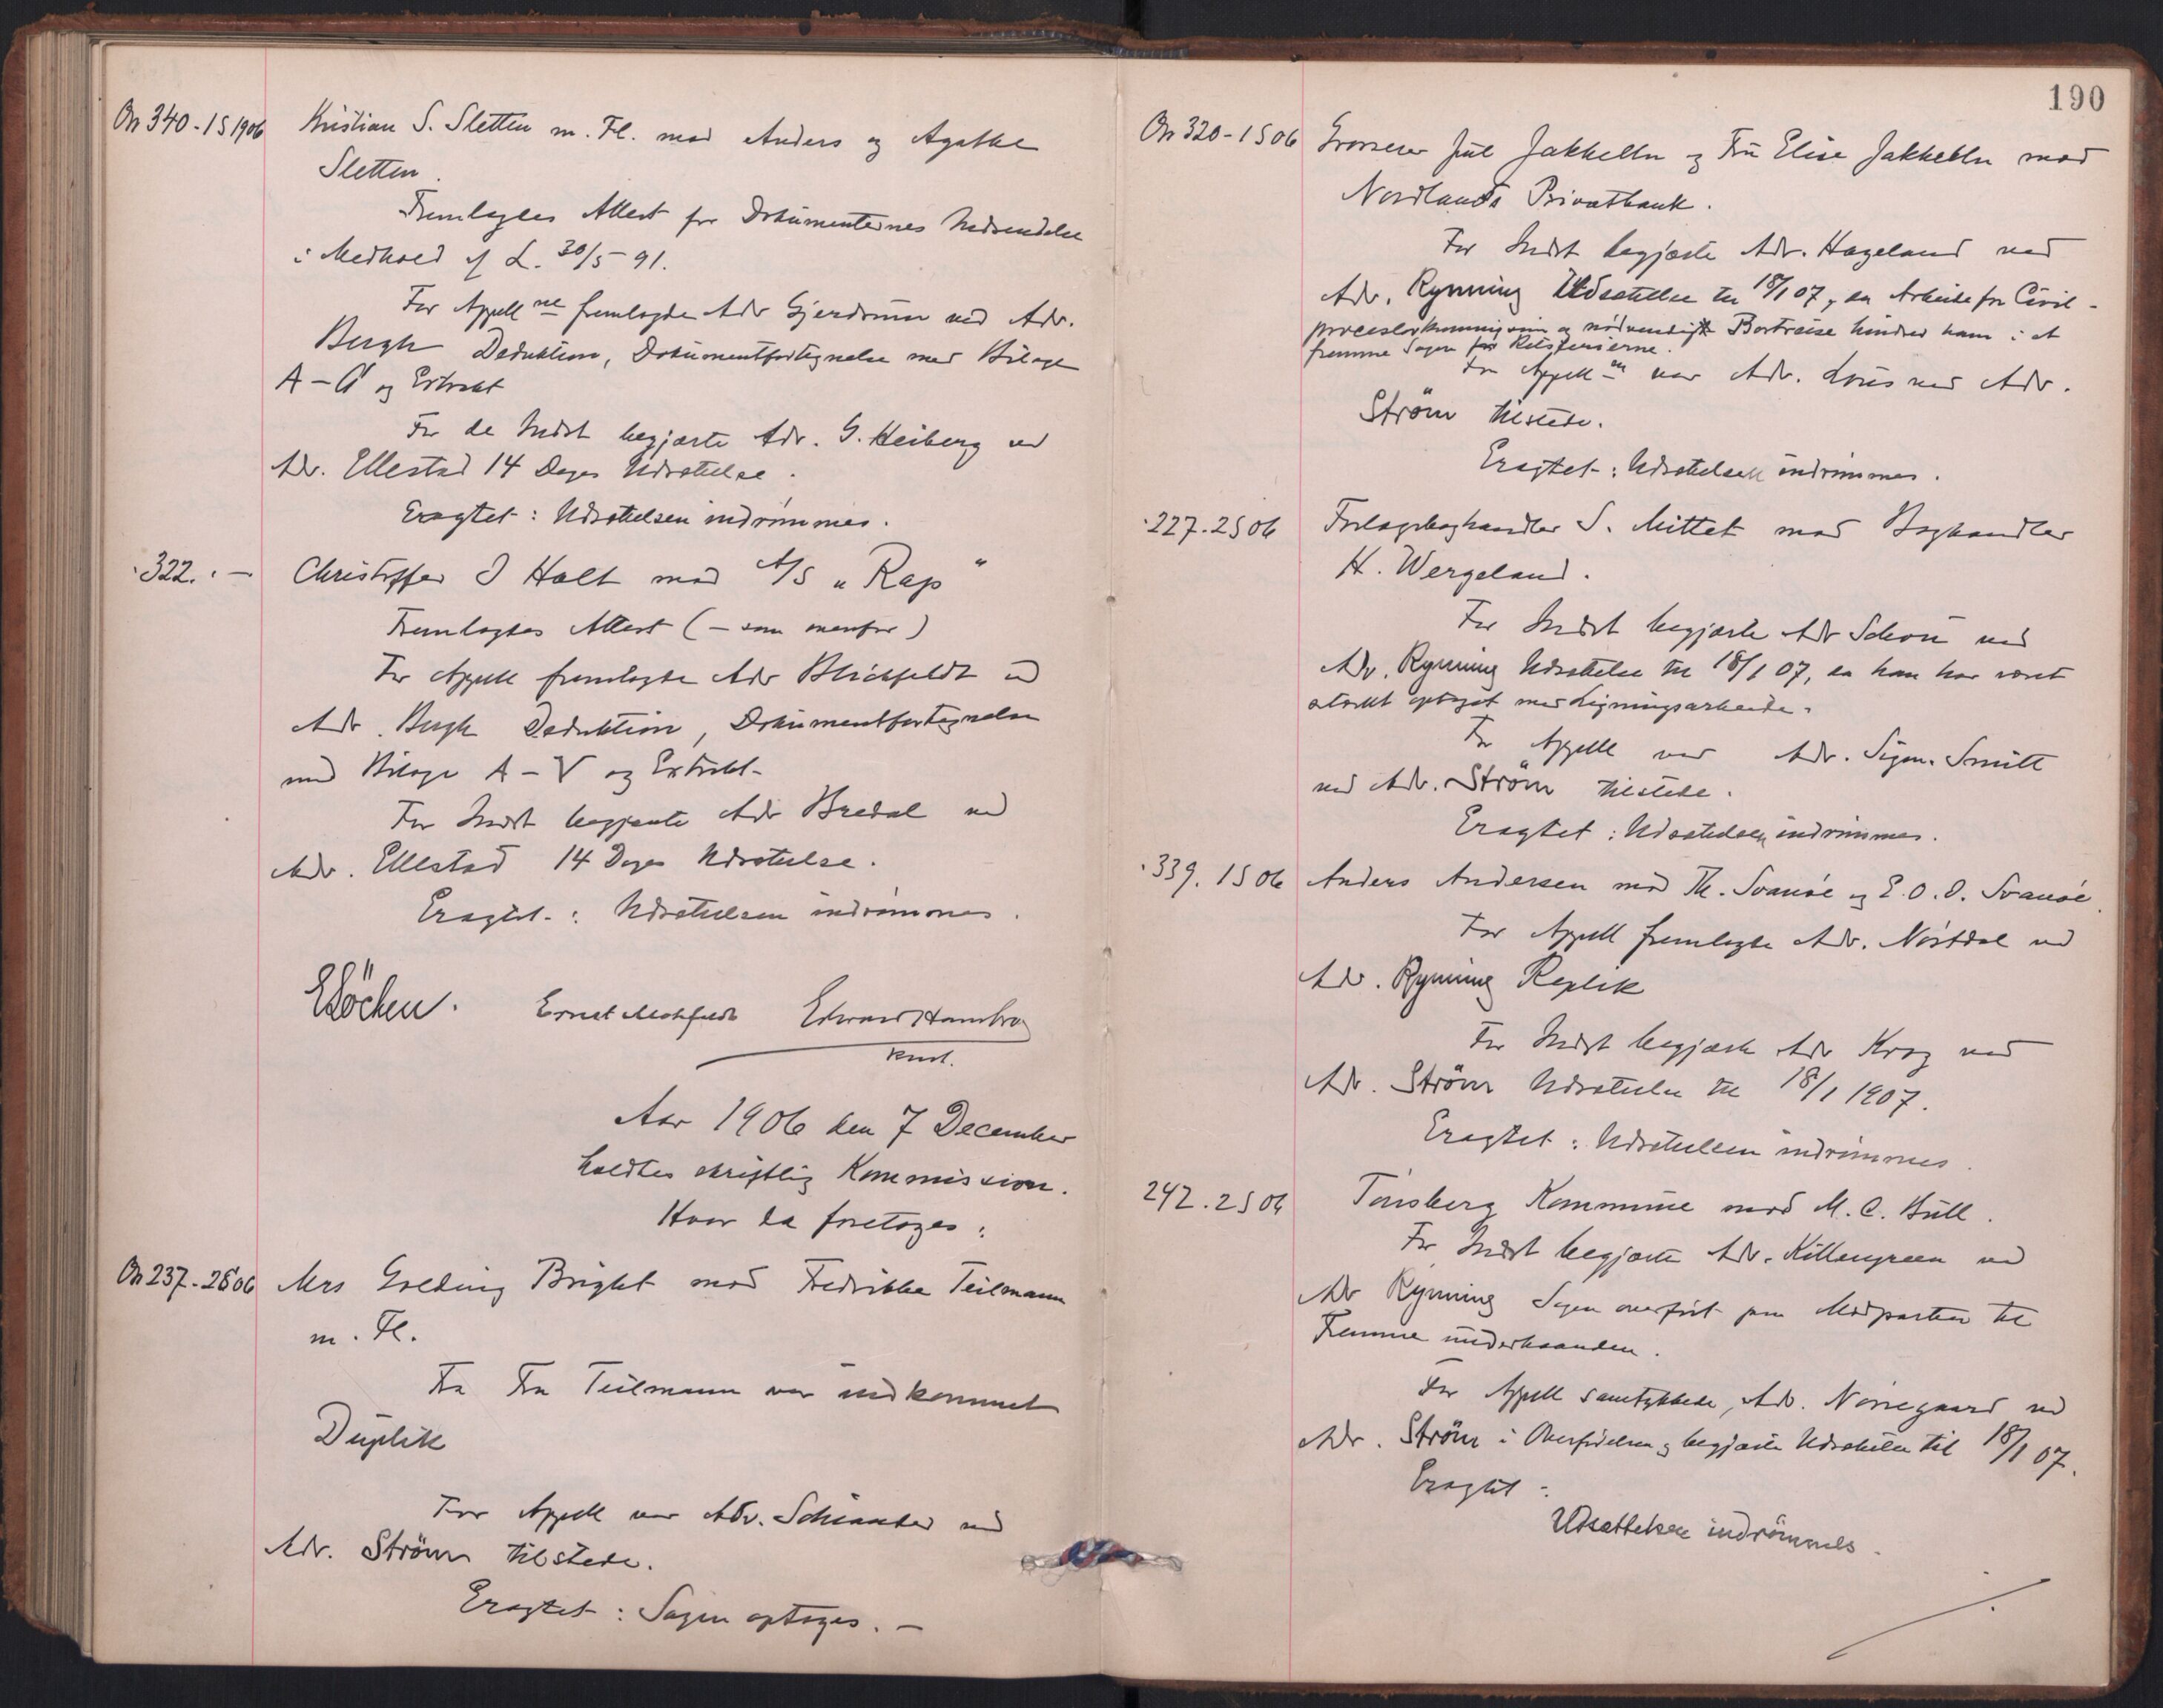 On 340-1S 1906 Kristian S. Sletten m. Fl. mod Anders og Agathe
Sletten.
Fremlagdes Attest for Dokumenternes Nedsendelse
i Medhold af L. 30/5 91.
For Appell ne fremlagde Adv Gjerdrum ved Adv.
Bergh Deduktion, Dokumentfortegnelse med Bilage
A – Å og Extrakt
For de Indst begjærte Adv. G. Heiberg ved
Adv. Ellestad 14 Dages Udsættelse.
Eragtet: Udsættelsen indrømmes.
322. . – Christoffer I Holt mod A/S "Rap"
Fremlagdes Attest (– som ovenfor)
For Appell fremlagde Adv Blichfeldt ved
Adv. Bergh Deduktion, Dokumentfortegnelse
med Bilage A – V og Extrakt.
For Indst begjærte Adv Bredal ved
Adv. Ellestad 14 Dages Udsættelse.
Eragtet: Udsættelsen indrømmes.
Löchen. Ernst Edvard Hambro
konst.
Aar 1906 den 7 December
holdtes skriftlig Kommission.
Hvor da foretoges:
On 237-2S06 Mrs Golding Bright mod Fredrikke Teilmann
m. Fl.
Fra Fru Teilmann var indkommet
Duplik
For Appell var Adv. Schiander ved
Adv. Ström tilstede.
Eragtet: Sagen optages. –
190
On 320-1S06 Grosserer Juul Jakhelln og Fru Elise Jakhelln mod
Nordlands Privatbank.
For Indst begjærte Adv. Hageland ved
Adv. Rynning Udsættelse til 18/1 07, da Arbeide for Civil-
proceslovkommission og nødvendigt Bortreise hindred ham i at
fremme Sagen før Retsferierne.
For Appell ne var Adv. Lous ved Adv.
Ström tilstede.
Eragtet: Udsættelsen indrømmes.
227.2S06 Forlagsboghandler S. Mittet mod Boghandler
H. Wergeland.
For Indst begjærte Adv Schou ved
Adv. Rynning Udsættelse til 18/1 07, da han har været
stærkt optaget med Ligningsarbeide.
For Appell var Adv. Sigm. Smitt
ved Adv. Ström tilstede.
Eragtet: Udsættelsen indrømmes.
339. 1S06 Anders Andersen mod Th. Svanøe og E. O. O. Svanøe.
For Appell fremlagde Adv. Nöstdal ved
Adv. Rynning Replik
For Indst begjærte Adv Krog ved
Adv. Ström Udsættelse til 18/1 1907.
Eragtet: Udsættelsen indrømmes.
242.2S06 Tönsberg Kommune mod M. C. Bull.
For Indst begjærte Adv. Killengreen ved
Adv Rynning Sagen overført paa Modparten til
Fremme underhaanden.
For Appell samtykkede Adv. Nörregaard ved
Adv. Ström i Overførelsen og begjærte Udsættelse til 18/1 07.
Eragtet:
Udsættelsen indrömmes.